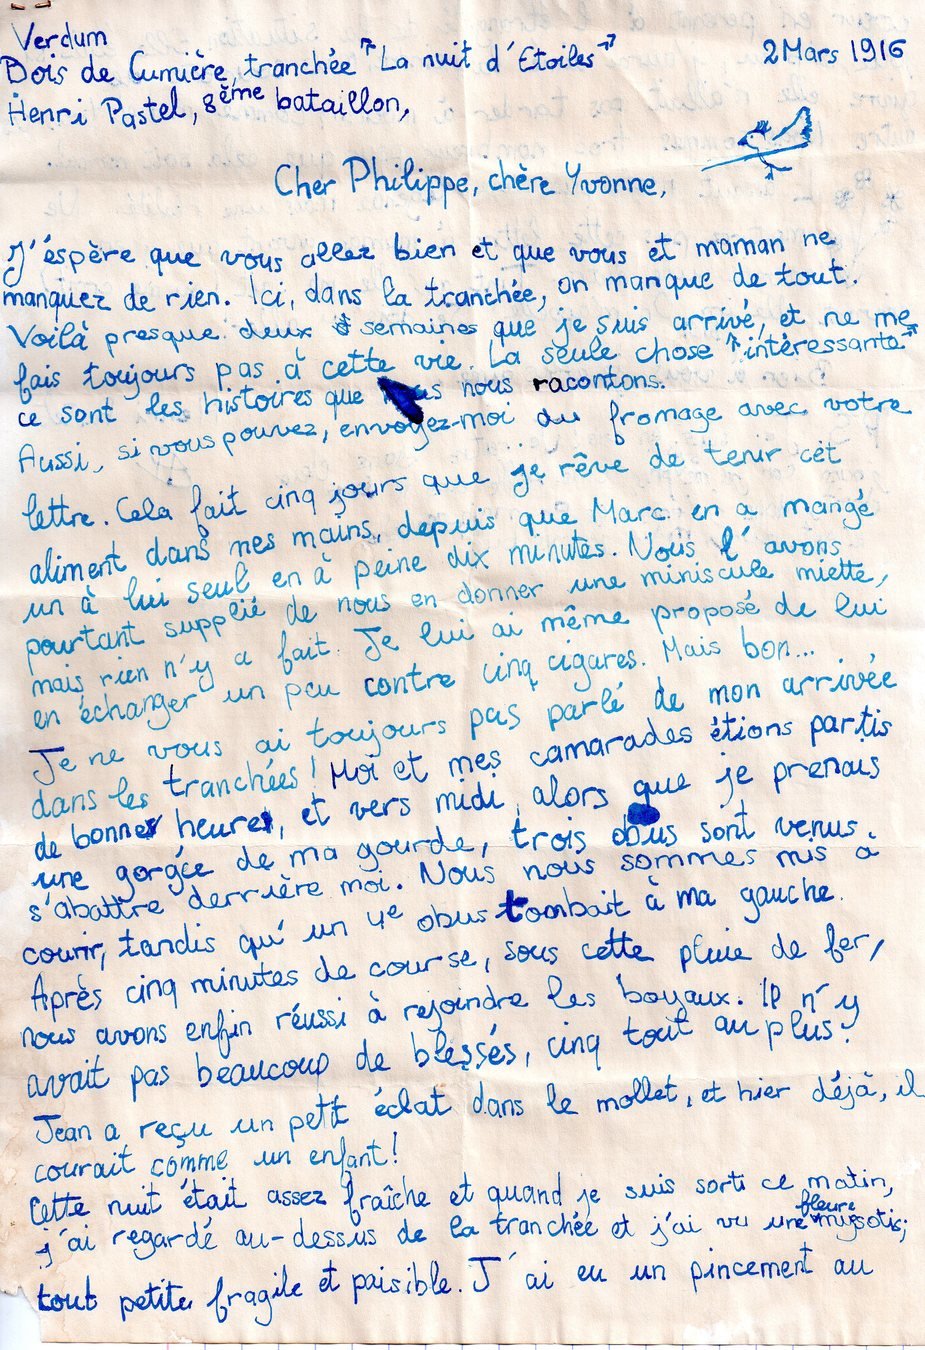 Verdum
Bois de Cumière, tranchée "La nuit d'Etoiles" 2 Mars 1916
Henri Pastel, 8ème bataillon,
Cher Philippe, chère Yvonne,
J'éspère que vous allez bien et que vous et maman ne
manquez de rien. Ici, dans la tranchée, on manque de tout.
Voilà presque deux semaines que je suis arrivé, et ne me
fais toujours pas à cette vie. La seule chose "intéressante"
ce sont les histoires que nous racontons.
Aussi, si vous pouvez, envoyez-moi du fromage avec votre
lettre. Cela fait cinq jours que je rêve de tenir cet
aliment dans mes mains, depuis que Marc en a mangé
un à lui seul en à peine dix minutes. Nous l'avons
pourtant supplié de nous en donner une miniscule miette,
mais rien n'y a fait. Je lui ai même proposé de lui
en échanger un peu contre cinq cigares. Mais bon...
Je ne vous ai toujours pas parlé de mon arrivée
dans les tranchées! Moi et mes camarades étions partis
de bonne heure, et vers midi, alors que je prenais
une gorgée de ma gourde, trois obus sont venus
s'abattre derrière moi. Nous nous sommes mis à
courir, tandis qu'un 4e obus tombait à ma gauche.
Après cinq minutes de course, sous cette pluie de fer,
nous avons enfin réussi à rejoindre les boyaux. Il n'y
avait pas beaucoup de blessés, cinq tout au plus.
Jean a reçu un petit éclat dans le mollet, et hier déjà, il
courait comme un enfant!
Cette nuit était assez fraîche et quand je suis sorti ce matin,
j'ai regardé au-dessus de la tranchée et j'ai vu une fleur myosotis;
tout petite fragile et paisible. J'ai eu un pincement au